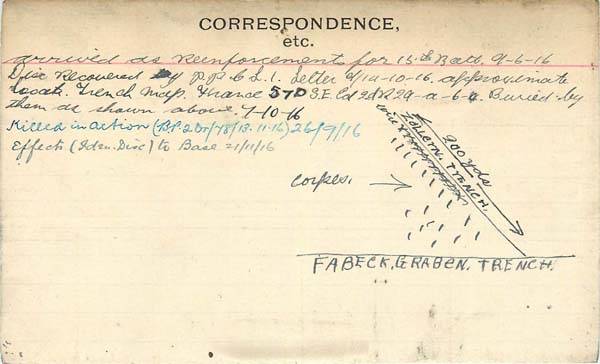 CORRESPONDENCE,
etc.
arrived as Reinforcement for 15th Batt. 9-6-16
Disc Recovered by P.P.C.L.I. Letter 9/14-10-16. approximate
Locatn. Trench Map. France 57D S.E. Ed 2d R29-a-6-4. Buried by
them as shown above. 7-10-16
Killed in action (B.P.2Dr/78/13-11-16) 26/9/16
Effects (Iden. Disc) to Base 21/11/16
ZOLLERN. TRENCH.
900 yds
wire
Corpses.
FABECK. GRABEN. TRENCH.